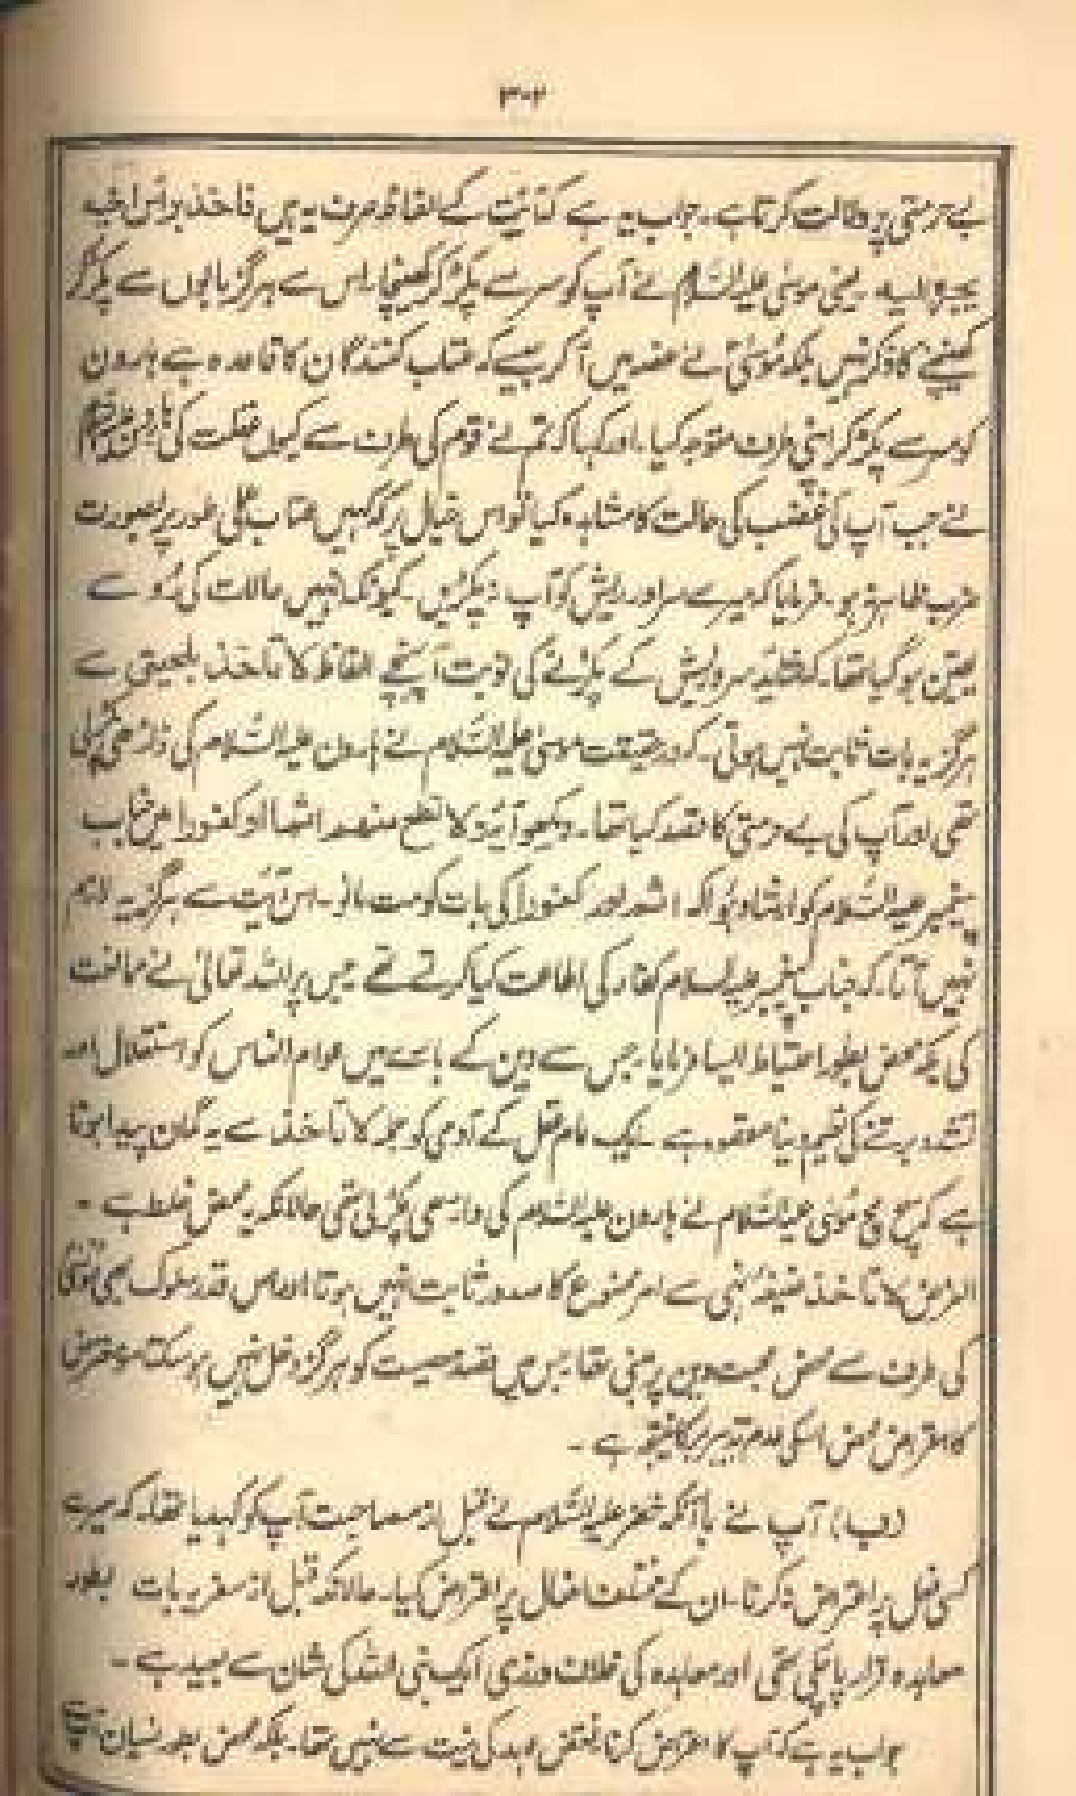 ۳۰۲
بے حرمتی پر دلالت کرتا ہے۔ جواب یہ ہے کہ آیت کے الفاظ صرف یہ ہیں فاخذ براس اخیہ
یجرہ الیہ۔ یعنی موسیٰ علیہ السّلام نے آپ کو سر سے پکڑ کر کھینچا۔ اس سے ہرگز بالوں سے پکڑ کر
کھینچنے کا ذکر نہیں بلکہ موسیٰؑ نے غصہ میں آ کر جیسے کہ عتاب کنندگان کا قاعدہ ہے ہارون
کو سر سے پکڑ کر اپنی طرف متوجہ کیا۔ اور کہا کہ تم نے قوم کی طرف سے کیوں غفلت کی ہارون علیہ السلام
نے جب آپ کی غضب کی حالت کا مشاہدہ کیا تو اس خیال پر کہ کہیں عتاب عملی طور پر بصورت
ضرب ظاہر نہ ہو۔ فرمایا کہ میرے سر اور ریش کو آپ نہ پکڑیں۔ کیونکہ انہیں حالات کی رُو سے
یقین ہو گیا تھا۔ کہ شاید سر و ریش کے پکڑنے کی نوبت آ پہنچے الفاظ لا تاخذ بلحیتی سے
ہرگز یہ بات ثابت نہیں ہوتی۔ کہ درحقیقت موسیٰ علیہ السّلام نے ہارون علیہ السّلام کی ڈاڑھی پکڑلی
تھی اور آپ کی بے حرمتی کا قصد کیا تھا۔ دیکھو آیہ ولا تطع منھم اٰثما او کفورا میں جناب
پیغمبر علیہ السّلام کو ارشاد ہوا کہ اٰثم اور کفورا کی بات کو مت مانو۔ اس آیت سے ہرگز یہ لازم
نہیں آتا۔ کہ جناب پیغمبر علیہ السلام کفار کی اطاعت کیا کرتے تھے جس پر اللہ تعالیٰ نے ممانعت
کی بلکہ محض بطور احتیاط ایسا فرمایا۔ جس سے دین کے بارے میں عوام الناس کو استقلال اور
تشدد برتنے کی تعلیم دینا مقصود ہے۔ ایک عام عقل کے آدمی کو جملہ لا تاخذ سے یہ گمان پیدا ہوتا
ہے کہ سچ مچ موسٰی علیہ السّلام نے ہارون علیہ السّلام کی داڑھی پکڑ لی تھی حالانکہ یہ محض غلط ہے۔
الغرض لا تاخذ صیغہ نہی سے امر ممنوع کا صدور ثابت نہیں ہوتا اور اس قدر سلوک بھی موسیٰؑ
کی طرف سے محض محبت دین پر مبنی تھا۔ جس میں قصد معصیت کو ہرگز دخل نہیں ہو سکتا۔ معترض
کا اعتراض محض اسکی عدم تدبیر کا نتیجہ ہے۔
(ب) آپ نے باآنکہ خضر علیہ السّلام نے قبل از مصاحبت آپ کو کہدیا تھا۔ کہ میرے
کسی فعل پر اعتراض نہ کرنا۔ ان کے مختلف افعال پر اعتراض کیا۔ حالانکہ قبل از سفر یہ بات بطور
معاہدہ قرار پا چکی تھی اور معاہدہ کی خلاف ورزی ایک نبی اللہ کی شان سے بعید ہے۔
جواب یہ ہے کہ آپ کا اعتراض کرنا نقض عہد کی نیت سے نہیں تھا۔ بلکہ محض بطور نسیان